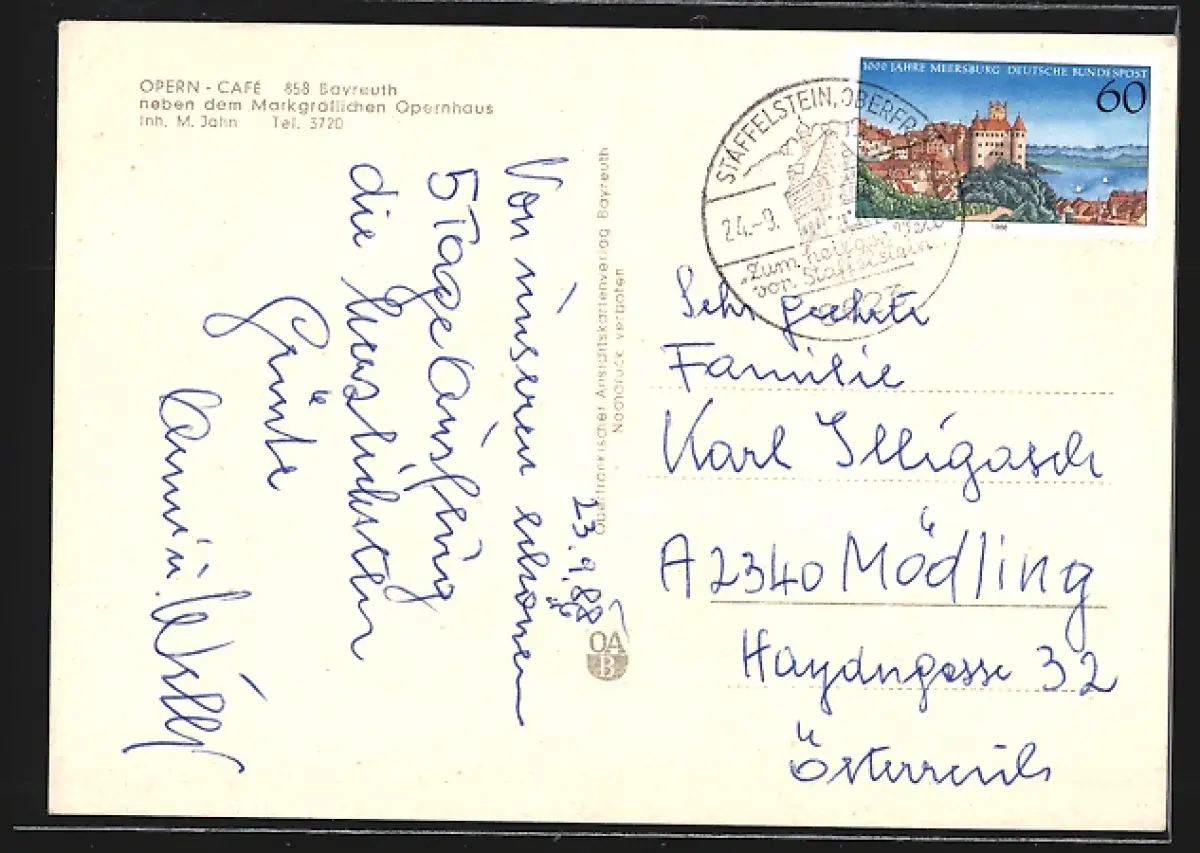 OPERN - CAFÉ 858 Bayreuth
neben dem Markgräflichen Opernhaus
Inh. M. Jahn Tel. 3720
Von unseren schönen
5 Tage Ausflug
die herzlichsten
Grüße
23.9.88
Oberfränkischer Ansichtskartenverlag Bayreuth
Nachdruck verboten
OA
B
1000 JAHRE MEERSBURG DEUTSCHE BUNDESPOST
60
1988
STAFFELSTEIN, OBERFR
24.-9.
"Zum heilgen
von Staffelstein
Sehr geehrte
Familie
Karl Illigasch
A 2340 Mödling
Haydngasse 32
Österreich